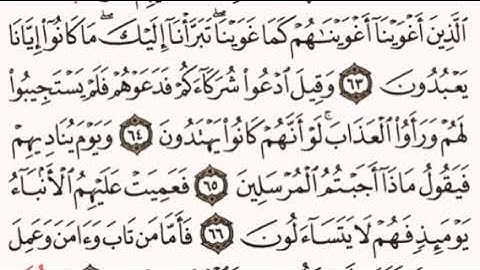 ٱلَّذِينَ أَغْوَيْنَآ أَغْوَيْنَٰهُمْ كَمَا غَوَيْنَا ۖ تَبَرَّأْنَآ إِلَيْكَ ۖ مَا كَانُوٓا۟ إِيَّانَا
يَعْبُدُونَ ٦٣ وَقِيلَ ٱدْعُوا۟ شُرَكَآءَكُمْ فَدَعَوْهُمْ فَلَمْ يَسْتَجِيبُوا۟
لَهُمْ وَرَأَوُا۟ ٱلْعَذَابَ ۚ لَوْ أَنَّهُمْ كَانُوا۟ يَهْتَدُونَ ٦٤ وَيَوْمَ يُنَادِيهِمْ
فَيَقُولُ مَاذَآ أَجَبْتُمُ ٱلْمُرْسَلِينَ ٦٥ فَعَمِيَتْ عَلَيْهِمُ ٱلْأَنۢبَآءُ
يَوْمَئِذٍ فَهُمْ لَا يَتَسَآءَلُونَ ٦٦ فَأَمَّا مَن تَابَ وَءَامَنَ وَعَمِلَ